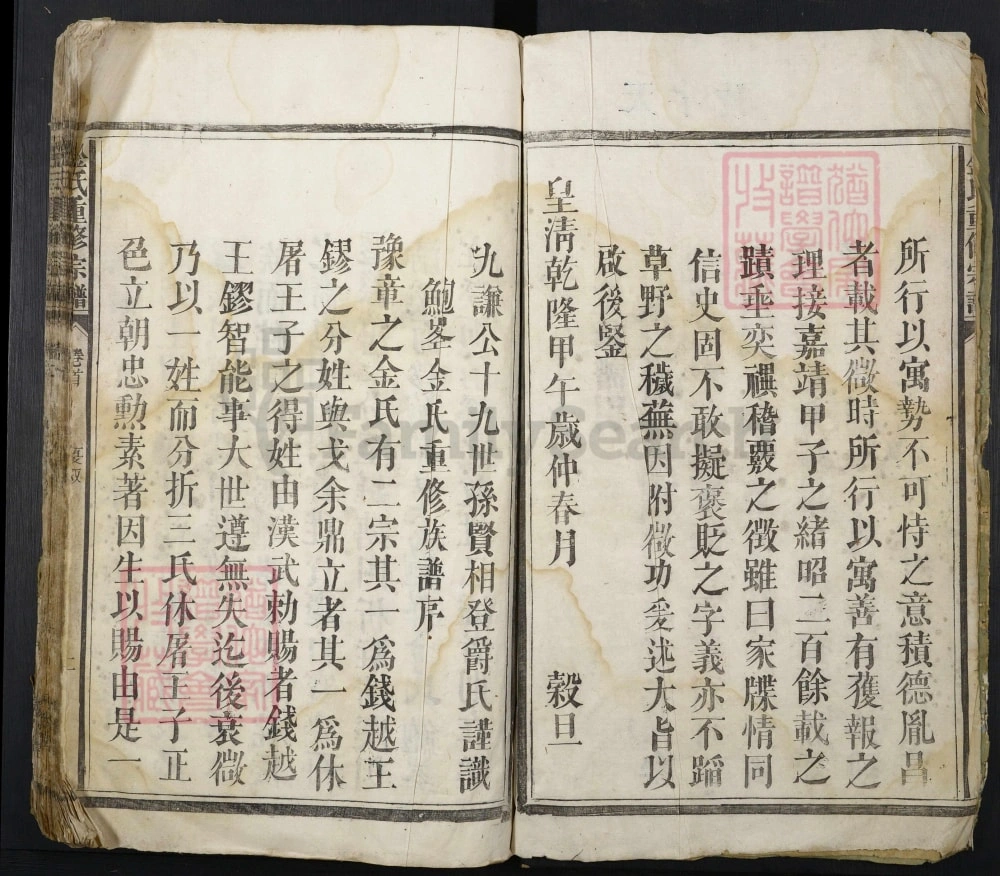 所行以寓勢不可恃之意積德胤昌
者載其微時所行以寓善有獲報之
理接嘉靖甲子之緒昭二百餘載之
蹟垂奕禩稽覈之徵雖曰家牒情同
信史固不敢擬褒貶之字義亦不蹈
草野之穢蕪因附微功爰述大旨以
啟後鑒
皇清乾隆甲午歲仲春月 穀旦
九謙公十九世孫賢相登爵氏謹識
鮑峯金氏重修族譜序
豫章之金氏有二宗其一為錢越王
鏐之分姓與戈余鼎立者其一為休
屠王子之得姓由漢武勅賜者錢越
王鏐智能事大世遵無失迄後衰微
乃以一姓而分折三氏休屠王子正
色立朝忠勳素著因生以賜由是一
金氏重修宗譜 卷首
FamilySearch